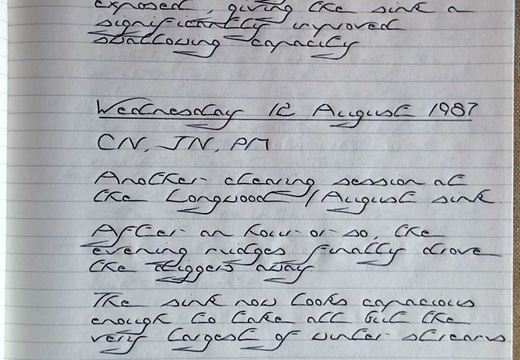 exposed, giving the sink a
significantly improved
swallowing capacity
Wednesday 12 August 1987
CN, JN, PM
Another clearing session at
the Longwood / August sink
After an hour or so, the
evening midges finally drove
the diggers away
The sink now looks capacious
enough to take all but the
very largest of winter streams